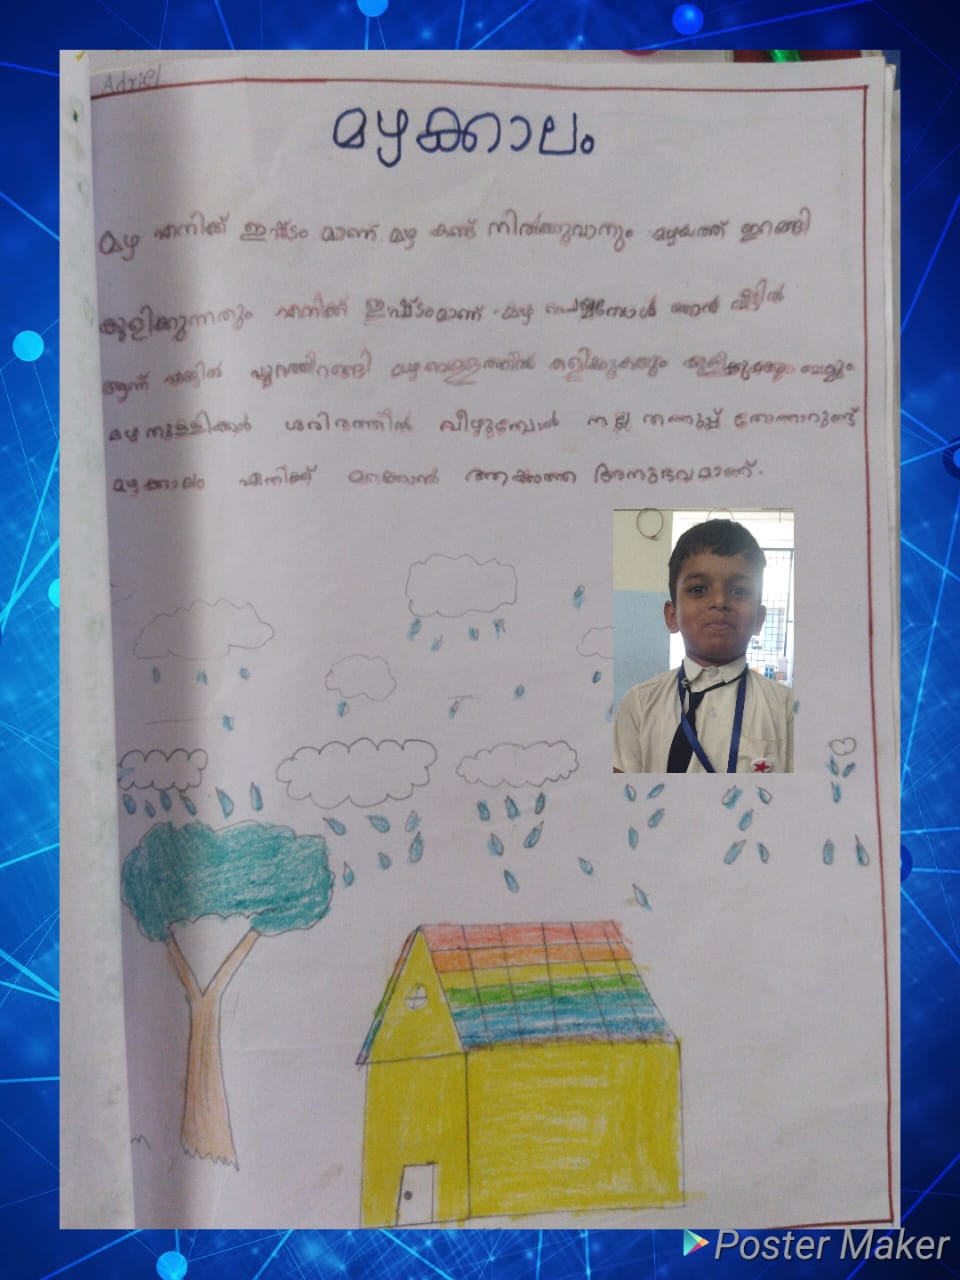 Adriel
മഴക്കാലം
മഴ എനിക്ക് ഇഷ്ടം മാണ്. മഴ കണ്ട് നിൽക്കുവാനും മഴയത്ത് ഇറങ്ങി
കുളിക്കുന്നതും എനിക്ക് ഇഷ്ടമാണ്. മഴ പെയ്യുമ്പോൾ ഞാൻ വീട്ടിൽ
പുറത്തിറങ്ങി മഴവെള്ളത്തിൽ കളിക്കുകയും കുളിക്കുകയും ചെയ്യും
മഴതുള്ളികൾ ശരിരത്തിൽ വീഴുമ്പോൾ നല്ല തണുപ്പ് തോന്നാറുണ്ട്
മഴക്കാലം എനിക്ക് മറക്കാൻ ആകാത്ത അനുഭവമാണ്.
Poster Maker